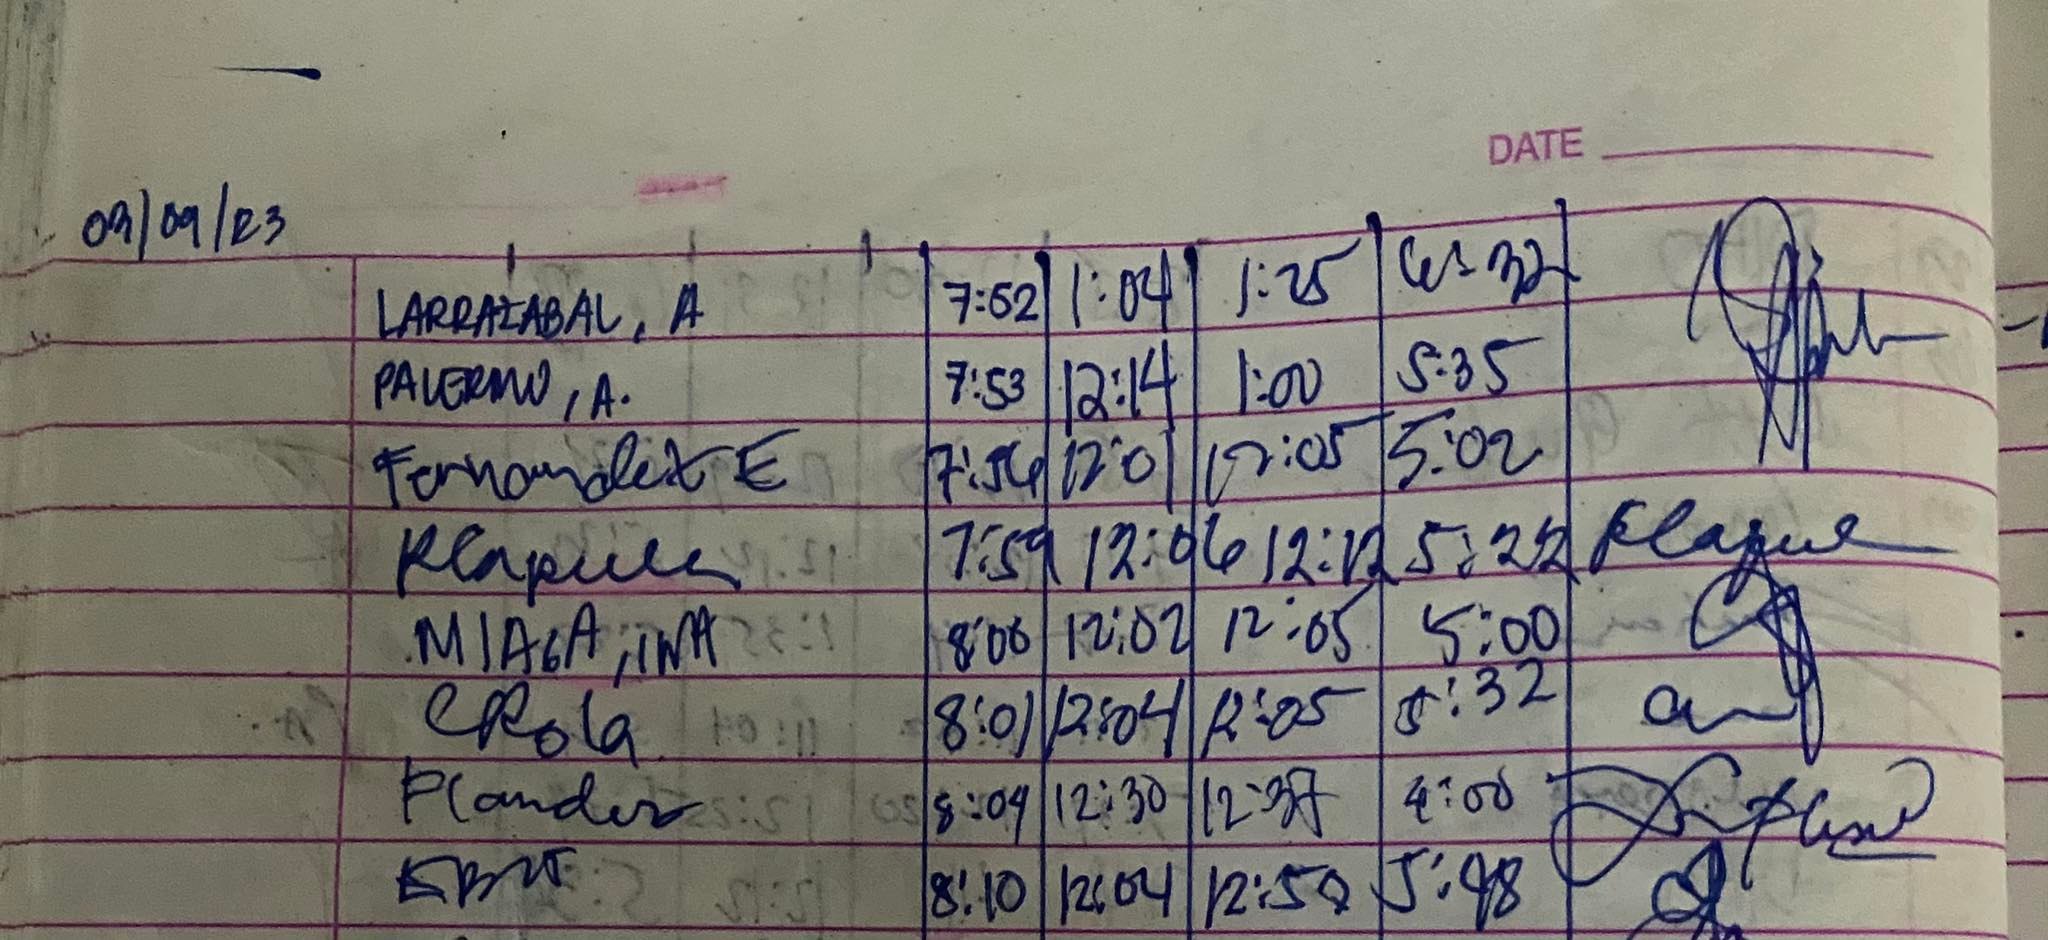 DATE
09/23
LARRAZABAL, A 7:52 1:04 1:25 6:32
PALERMO, A. 7:53 12:14 1:00 5:35
Fernandez E 7:56 12:01 12:05 5:02
7:59 12:06 12:12 5:22
MIAGA, INA 8:00 12:02 12:05 5:00
CRola 8:01 12:04 12:05 5:32
8:09 12:30 12:37 4:00
8:10 12:04 5:48